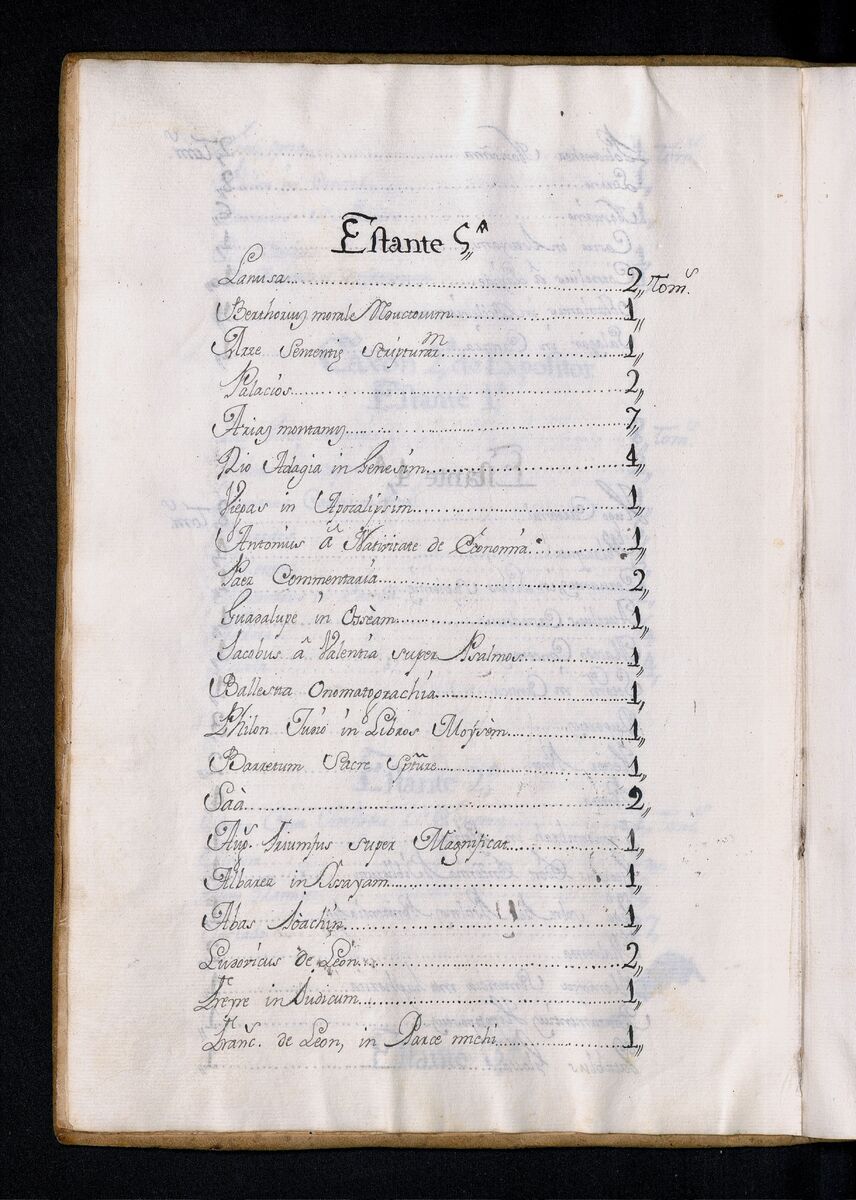 Estante 5,,ᴬ
Lanusa 2,, Tom.ˢ
Berthorius morale Reuctorium 1,,
Arze Sententiȩ Scripturarᵐ 1,,
Palacios 2,,
Arias montanus 7,,
Rio Adagia in Genesim 4,,
Viepas in Apocalipsim 1,,
Antonius â Natiuitate de Œconomia 1,,
Paez Commentaria 2,,
Guadalupe in Osseam 1,,
Jacobus â Valentia super Psalmos 1,,
Ballestra Onomatograchia 1,,
Philon Judio in Libros Moysem 1,,
Barretum Sacre Sptũre 1,,
Saà 2,,
Aug.ˢ Triumfus super Magnificat 1,,
Albarez in Issayam 1,,
Abas Joachin 1,,
Ludovicus de Leon 2,,
Freyre in Judicum 1,,
Franc.ˢ de Leon, in Parce michi 1,,